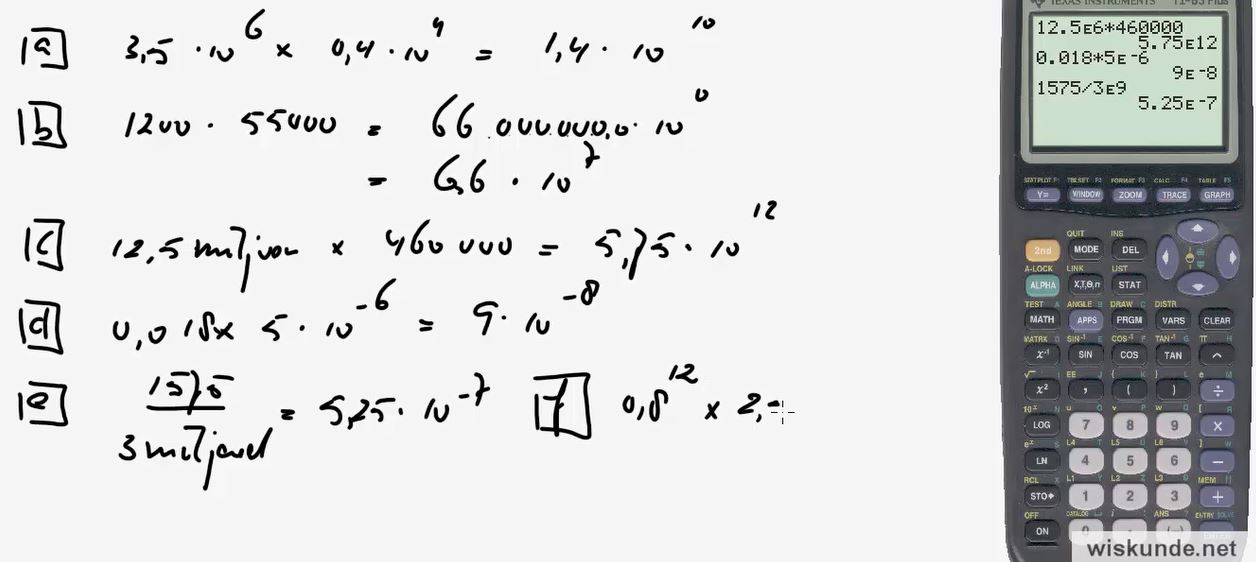 TEXAS INSTRUMENTS TI-83 Plus
12.5E6*460000
5.75E12
0.018*5E-6
9E-8
1575/3E9
5.25E-7
a 3,5 · 10^6 × 0,4 · 10^4 = 1,4 · 10^10
b 1200 · 55000 = 66.000.000,0 · 10^0
= 6,6 · 10^7
c 12,5 miljoen × 460 000 = 5,75 · 10^12
d 0,018 × 5 · 10^-6 = 9 · 10^-8
e 1575 / 3 miljard = 5,25 · 10^-7 f 0,8^12 × 2,
STAT PLOT F1 TBLSET F2 FORMAT F3 CALC F4 TABLE F5
Y= WINDOW ZOOM TRACE GRAPH
QUIT INS
2nd MODE DEL
A-LOCK LINK LIST
ALPHA X,T,θ,n STAT
TEST A ANGLE B DRAW C DISTR
MATH APPS PRGM VARS CLEAR
MATRX D SIN-1 E COS-1 F TAN-1 G π H
x-1 SIN COS TAN ^
√ I EE J { K } L e M
x2 , ( ) ÷
10x N u O v P w Q [ R
LOG 7 8 9 ×
ex S L4 T L5 U L6 V ] W
LN 4 5 6 −
RCL X L1 Y L2 Z L3 θ MEM "
STO 1 2 3 +
OFF CATALOG i ANS ENTRY SOLVE
ON 0
wiskunde.net